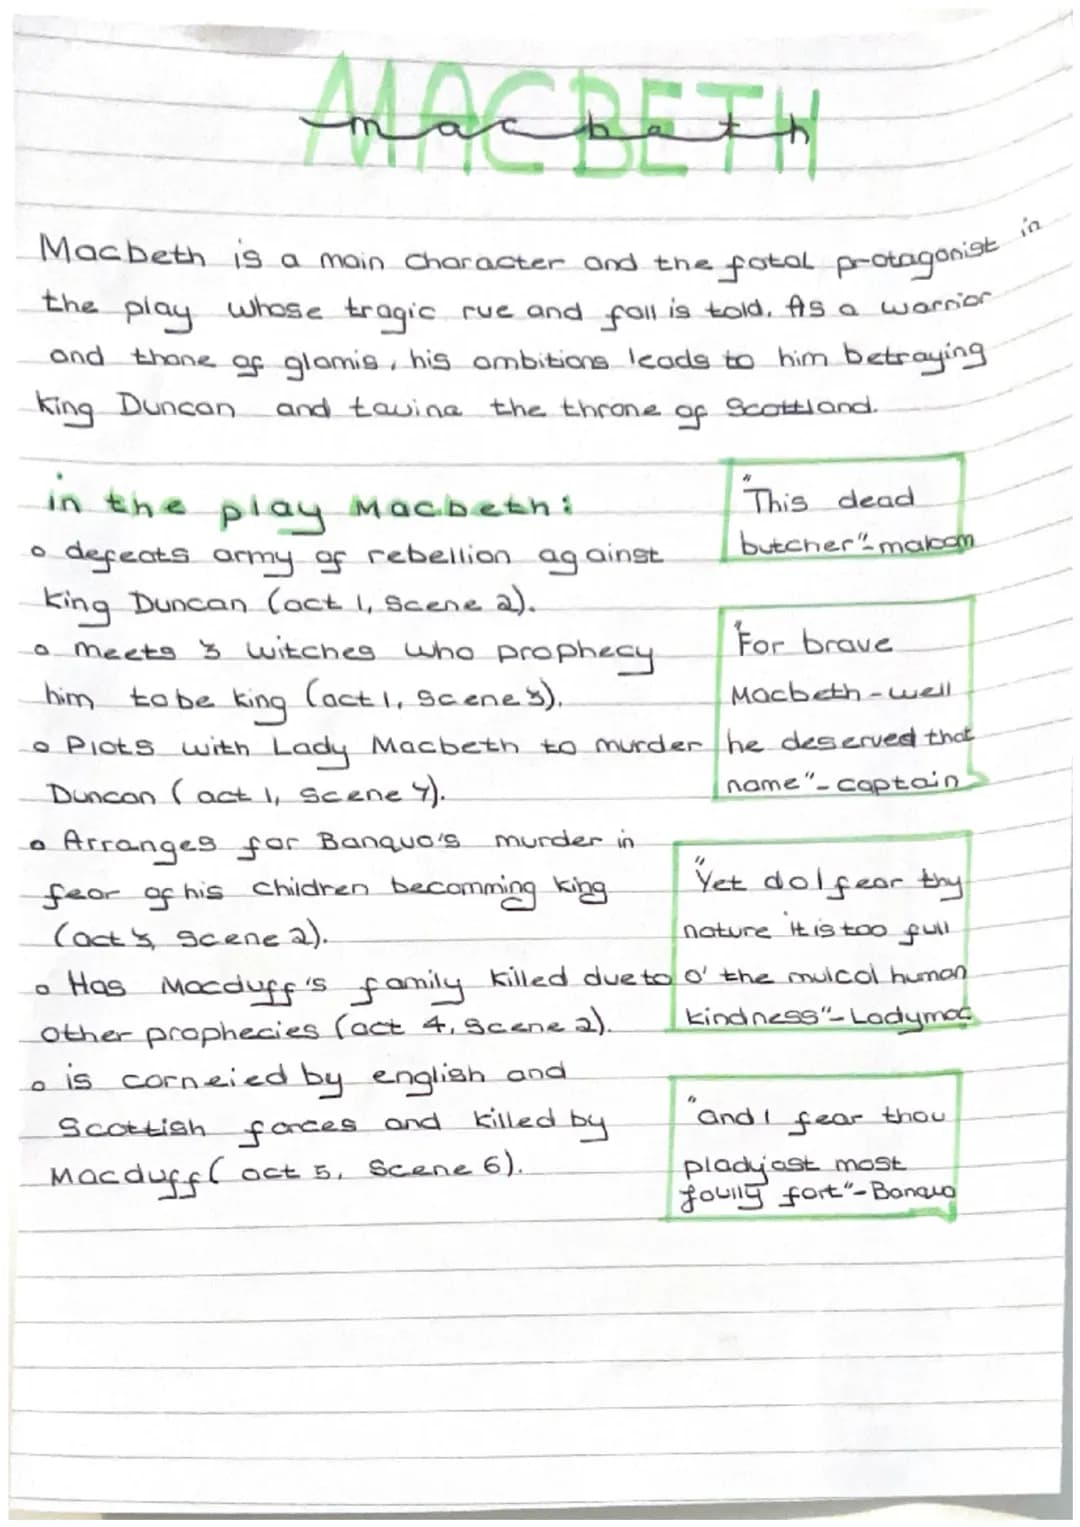 MACBETH
macbeth
Macbeth is a main character and the fatal protagonist in
the play whose tragic rue and fall is told. As a warrior
and thane of glamis, his ambitions leads to him betraying
King Duncan and tavina the throne of Scottland.
in the play Macbeth:
defeats army of rebellion against
King Duncan (act 1, scene 2).
meets 3 witches who prophecy
him to be king (act 1, scene 3).
Plots with Lady Macbeth to murder
Duncan (act 1, scene 7).
Arranges for Banquo's murder in
fear of his children becomming king
(act 3, scene 2).
Has Macduff's family killed due to
other prophecies (act 4, scene 2).
is corneied by english and
Scottish forces and killed by
Macduff (act 5, scene 6).
"This dead
butcher"-malcom
"For brave
Macbeth-well
he deserved that
name"-captain
"Yet do I fear thy
nature it is too full
o' the mulcol human
kindness"-Ladymac
"and I fear thou
pladyjast most
foully fort"-Banquo